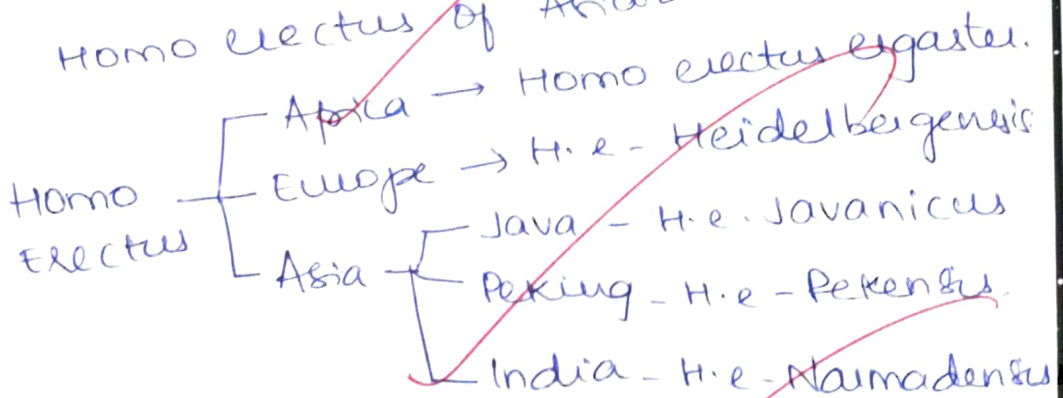 Homo erectus of
Africa → Homo erectus ergaster.
Europe → H. e - Heidelbergensis
Homo Erectus
Asia
Java - H. e. Javanicus
Peking - H. e - Pekensis
India - H. e - Narmadensis